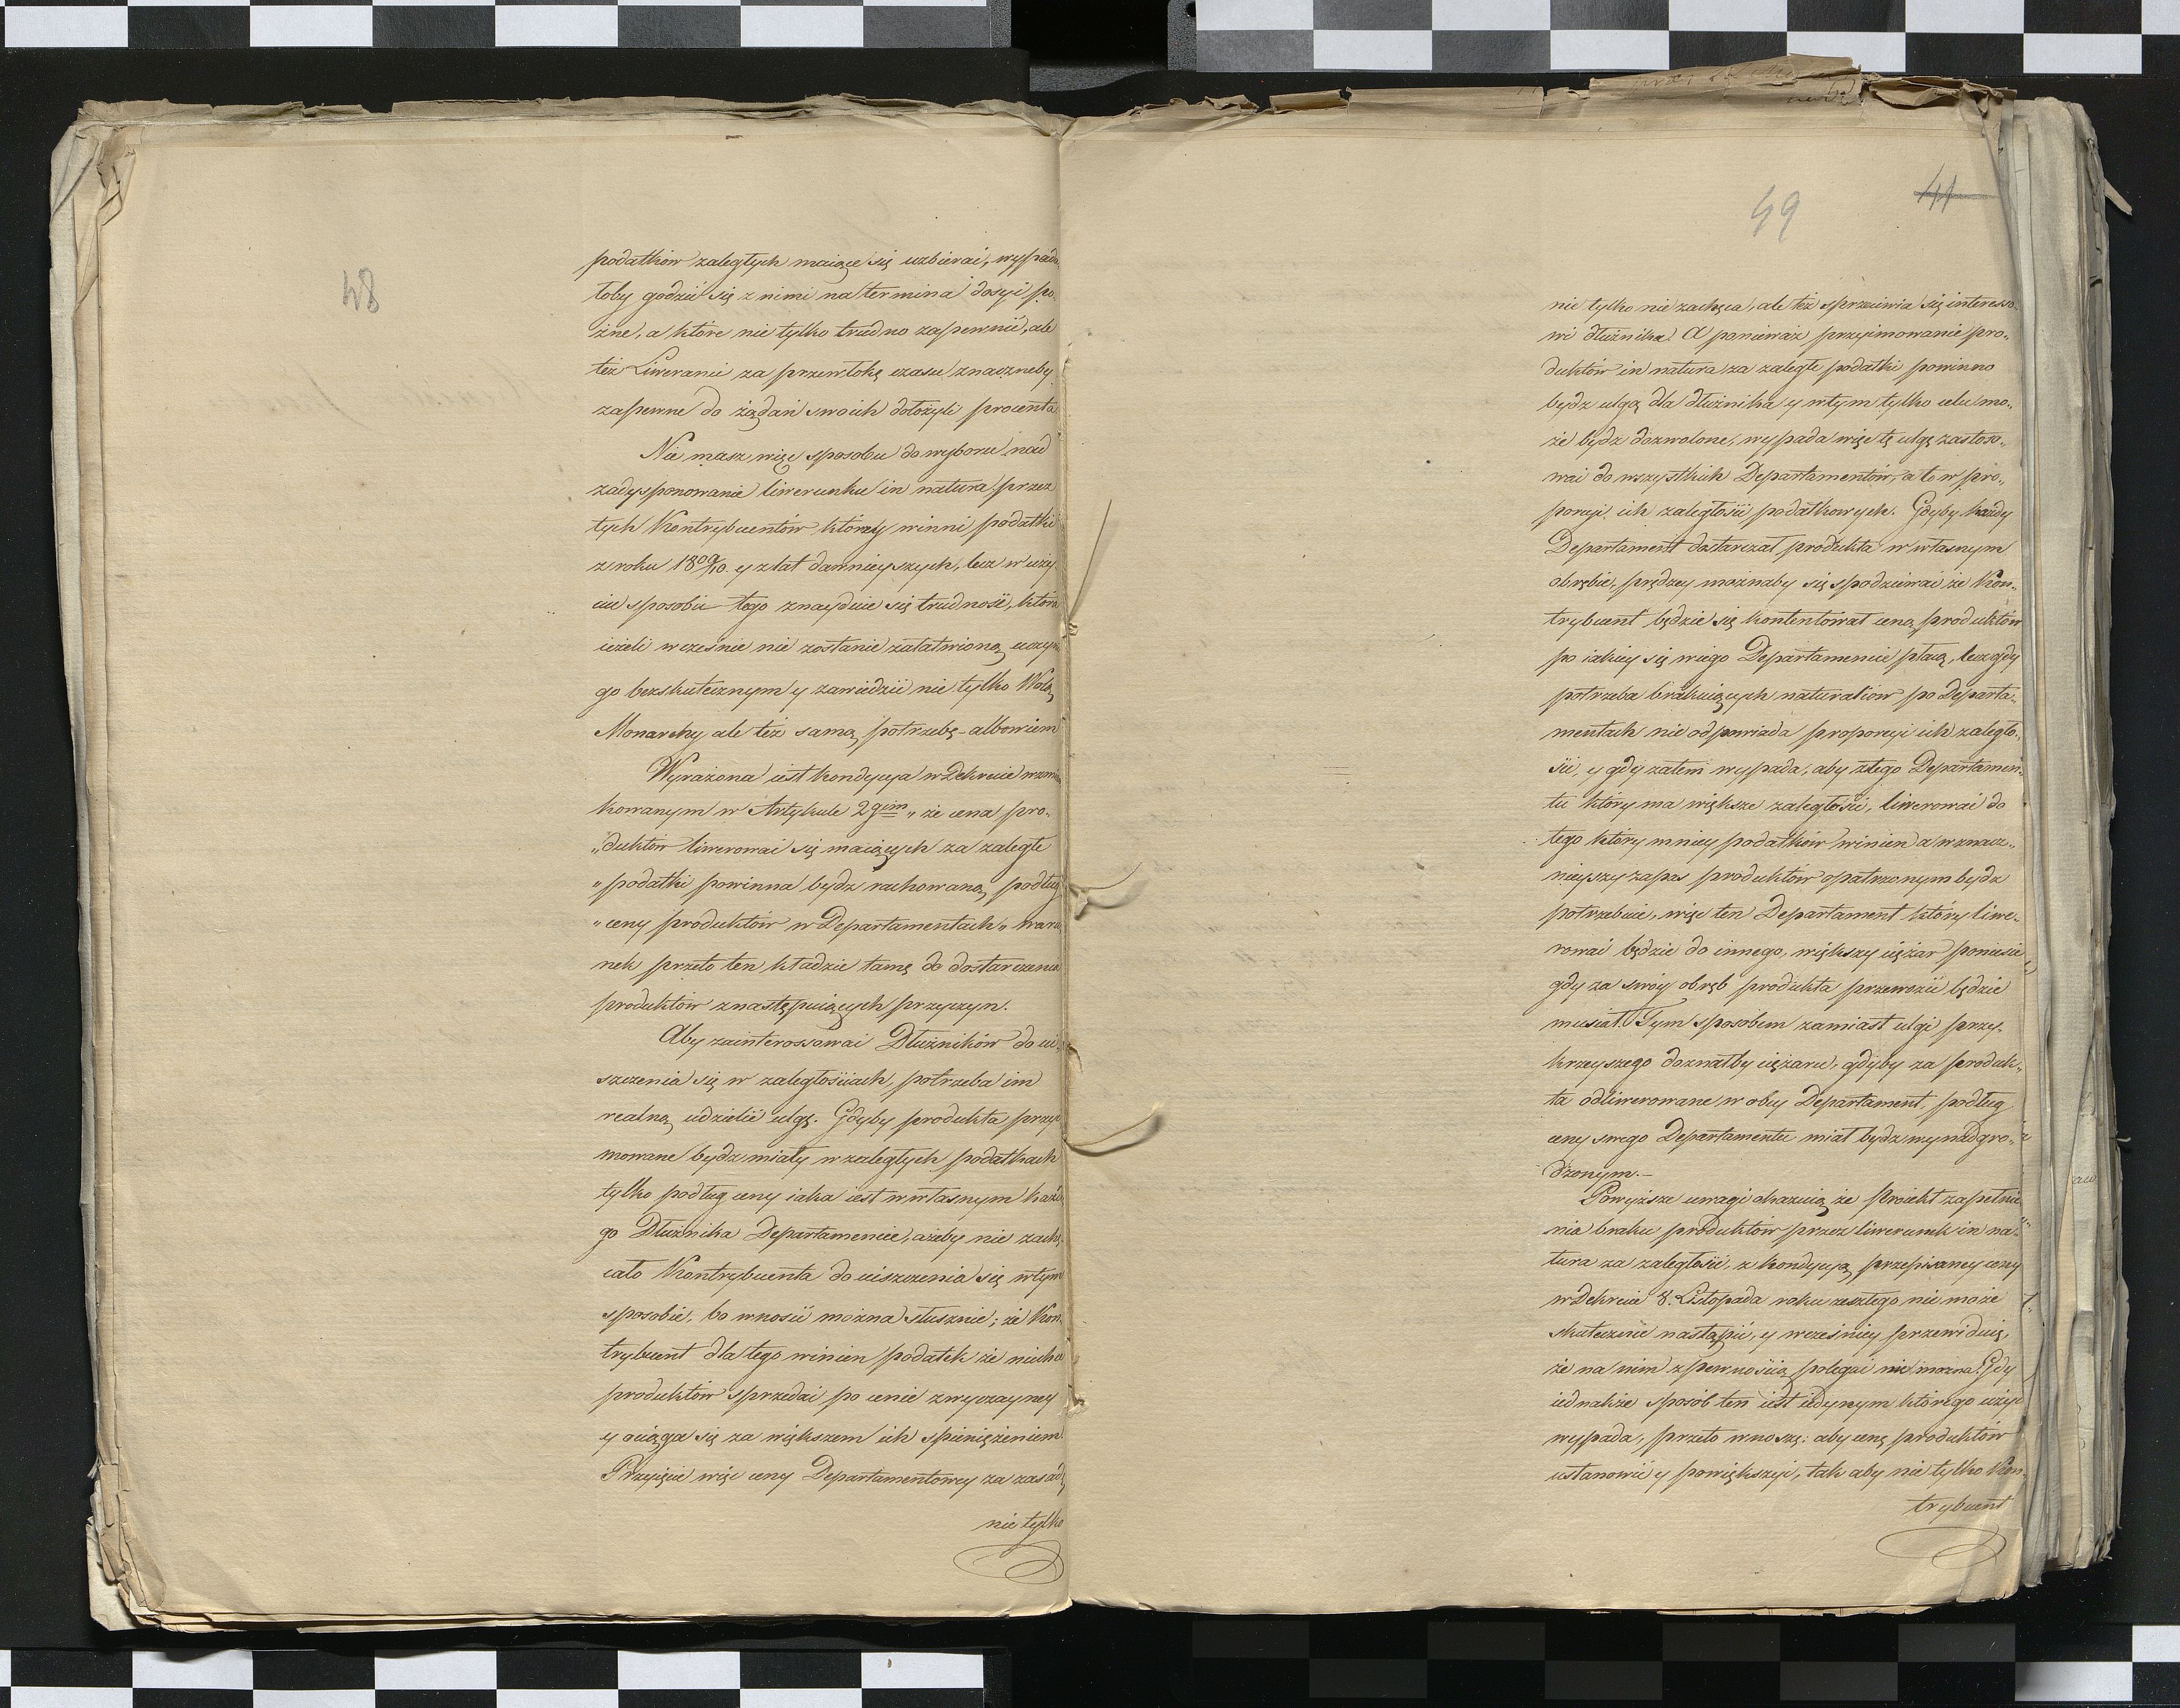 48
podatków zaległych maiące się uzbierać, wypada
łoby godzić się z nimi na termina dosyć po
źne, a które nie tylko trudno zapewnić, ale
też Liweranci za przewłokę czasu znaczneby
zapewne do żądań swoich dołożyli procenta
Nie masz więc sposobu do wyboru nad
zadysponowanie liwerunku in natura przez
tych Kontrybuentów którzy winni podatki
z roku 1809/10. y z lat dawnieyszych, lecz w uży
ciu sposobu tego znayduie się trudność, która
ieżeli wcześnie nie zostanie załatwioną uczyni
go bezskutecznym y zawiedzie nie tylko Wolą
Monarchy ale też samą potrzebę - albowiem
Wyrażona iest kondycya w Dekrecie wzmian
kowanym w Artykule 2gim „ że cena pro-
„duktów liwerować się maiących za zaległe
„podatki powinna bydz rachowaną podług
„ceny produktów w Departamentach„ waru
nek przeto ten kładzie tamę do dostarczenia
produktów z następuiących przyczyn.
Aby zainteressować Dłużników do ui-
szczenia się w zaległościach, potrzeba im
realną udzielić ulgę. Gdyby produkta przyi
mowane bydz miały w zaległych podatkach
tylko podług ceny iaka iest w własnym każde
go Dłużnika Departamencie, ażeby nie zachę
cało Kontrybuenta do uiszczenia się w tym
sposobie, bo wnosić można słusznie; że Kon
trybuent dla tego winien podatek że niechce
produktów sprzedać po cenie zwyczayney
y ociąga się za większem ich spieniężeniem.
Przyięcie więc ceny Departamentowey za zasadę
nie tylko
49
41
nie tylko nie zachęca, ale też sprzeciwia się interesso-
wi dłużnika. A ponieważ przyimowanie pro-
duktów in natura za zaległe podatki powinno
bydz ulgą dla dłużnika y w tym tylko celu mo-
że bydz dozwolone, wypada więc tę ulgę zastoso-
wać do wszystkich Departamentów, a to w pro-
porcyi ich zaległości podatkowych. Gdyby każdy
Departament dostarczał produkta w własnym
obrębie, prędzey możnaby się spodziewać że Kon-
trybuent będzie się kontentował ceną produktów
po iakiey się w iego Departamencie płacą, lecz gdy
potrzeba brakuiących naturaliów po Departa-
mentach nie odpowiada proporcyi ich zaległo-
ści, y gdy zatem wypada, aby z tego Departamen-
tu który ma większe zaległości, liwerować do
tego który mniey podatków winien a w znacz-
nieyszy zapas produktów opatrzonym bydz
potrzebuie, więc ten Departament który liwe-
rować będzie do innego, większy ciężar poniesie
gdy za swóy obręb produkta przewozić będzie
musiał. Tym sposobem zamiast ulgi przy-
krzeyszego doznałby ciężaru, gdyby za produk-
ta odliwerowane w obcy Departament, podług
ceny swego Departamentu miał bydz wynadgro-
dzonym.-
Powyższe uwagi okazuią że Proiekt zapełnie
nia braku produktów przez liwerunek in na-
tura za zaległości, z kondycyą przepisaney ceny
w Dekrecie 8. Listopada roku zeszłego nie może
skutecznie nastąpić, y wcześniey przewiduię,
że na nim z pewnością polegać nie można. Gdy
iednakże sposób ten iest iedynym którego użyć
wypada, przeto wnoszę: aby cenę produktów
ustanowić y powiększyć, tak aby nie tylko Kon-
trybuent